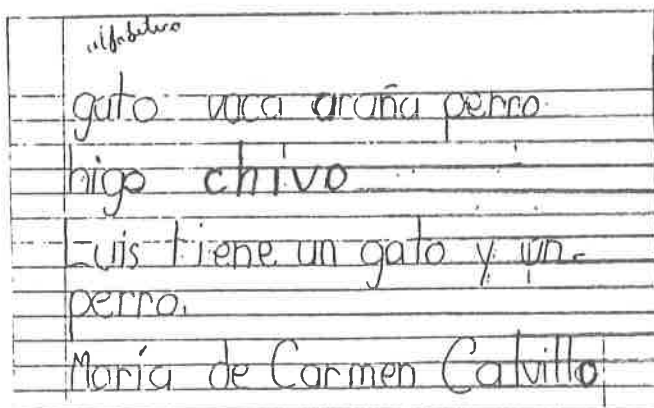 alfabético
gato vaca araña perro
higo chivo
Luis tiene un gato y un
perro.
María de Carmen Calvillo